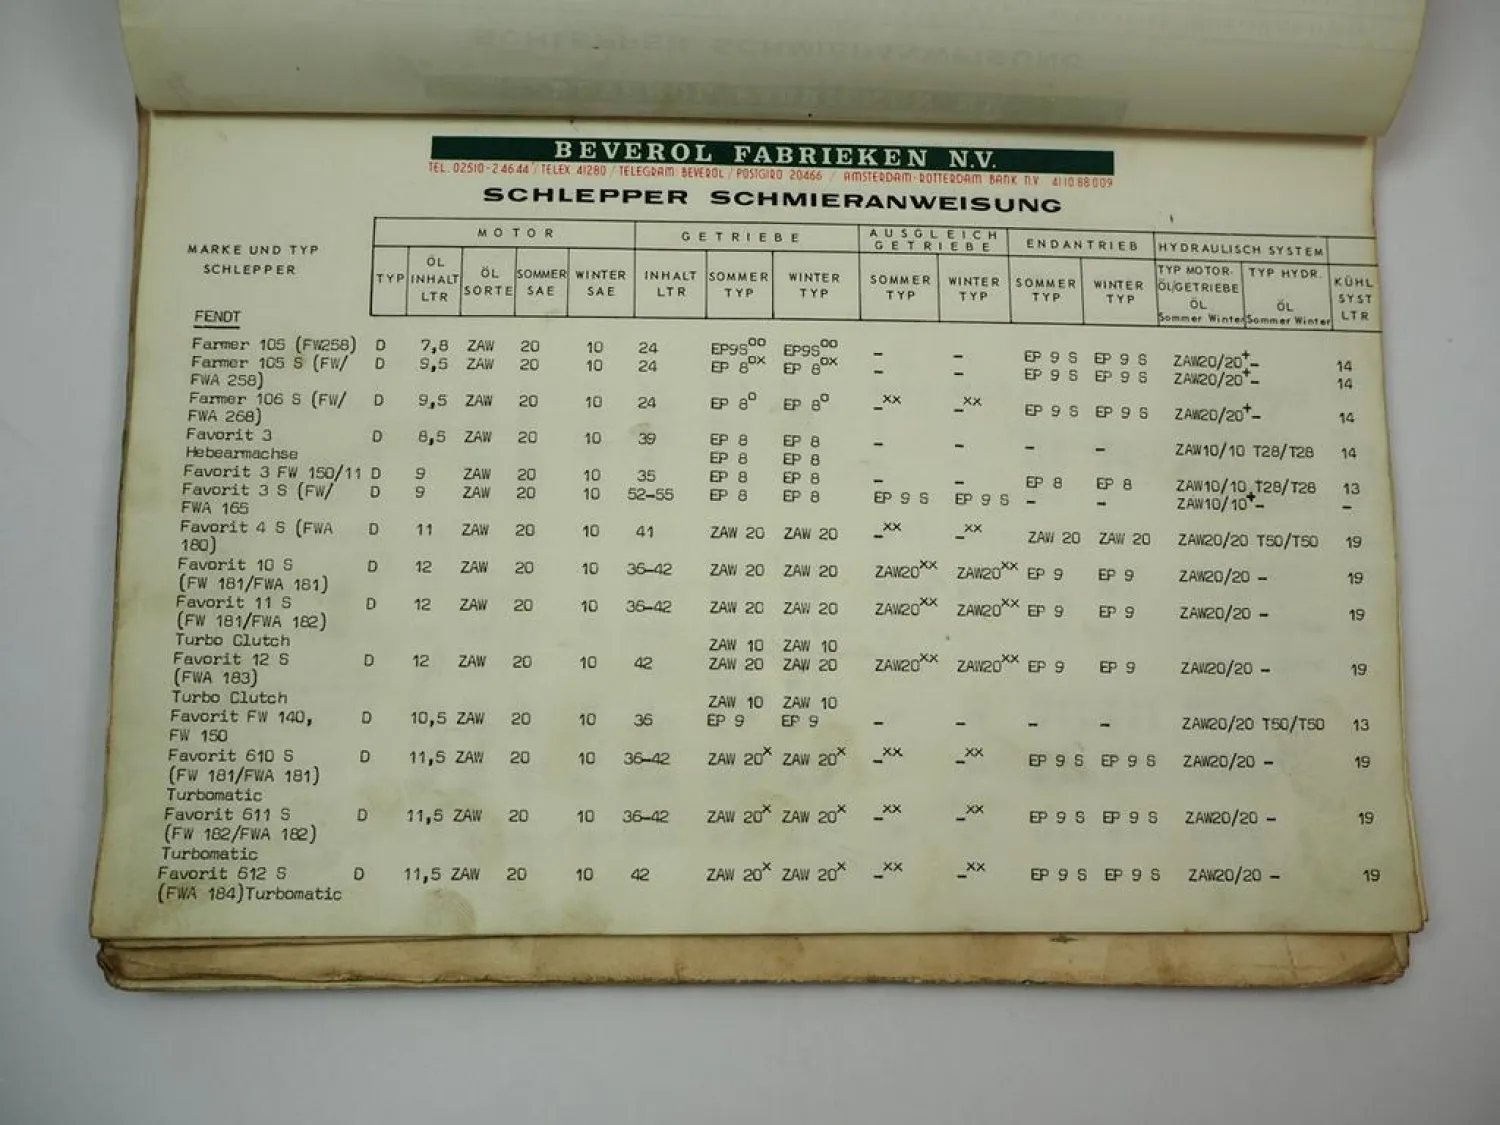 BEVEROL FABRIEKEN N.V.
TEL. 02510-24644 / TELEX 41280 / TELEGRAM: BEVEROL / POSTGIRO 20466 / AMSTERDAM-ROTTERDAM BANK N.V. 41.10.88.009
SCHLEPPER SCHMIERANWEISUNG
MARKE UND TYP SCHLEPPER
MOTOR GETRIEBE AUSGLEICH GETRIEBE ENDANTRIEB HYDRAULISCH SYSTEM
TYP ÖL INHALT LTR ÖL SORTE SOMMER SAE WINTER SAE INHALT LTR SOMMER TYP WINTER TYP SOMMER TYP WINTER TYP SOMMER TYP WINTER TYP TYP MOTOR-ÖL/GETRIEBE ÖL Sommer Winter TYP HYDR. ÖL Sommer Winter KÜHL SYST LTR
FENDT
Farmer 105 (FW258) D 7,8 ZAW 20 10 24 EP9S°° EP9S°° - - EP 9 S EP 9 S ZAW20/20+- 14
Farmer 105 S (FW/ D 9,5 ZAW 20 10 24 EP 8°x EP 8°x - - EP 9 S EP 9 S ZAW20/20+- 14
FWA 258)
Farmer 106 S (FW/ D 9,5 ZAW 20 10 24 EP 8° EP 8° -xx -xx EP 9 S EP 9 S ZAW20/20+- 14
FWA 268)
Favorit 3 D 8,5 ZAW 20 10 39 EP 8 EP 8 - - - - ZAW10/10 T28/T28 14
Hebearmachse EP 8 EP 8
Favorit 3 FW 150/11 D 9 ZAW 20 10 35 EP 8 EP 8 - - EP 8 EP 8 ZAW10/10 T28/T28 13
Favorit 3 S (FW/ D 9 ZAW 20 10 52-55 EP 8 EP 8 EP 9 S EP 9 S - - ZAW10/10+- -
FWA 165
Favorit 4 S (FWA D 11 ZAW 20 10 41 ZAW 20 ZAW 20 -xx -xx ZAW 20 ZAW 20 ZAW20/20 T50/T50 19
180)
Favorit 10 S D 12 ZAW 20 10 36-42 ZAW 20 ZAW 20 ZAW20xx ZAW20xx EP 9 EP 9 ZAW20/20 - 19
(FW 181/FWA 181)
Favorit 11 S D 12 ZAW 20 10 36-42 ZAW 20 ZAW 20 ZAW20xx ZAW20xx EP 9 EP 9 ZAW20/20 - 19
(FW 181/FWA 182)
Turbo Clutch ZAW 10 ZAW 10
Favorit 12 S D 12 ZAW 20 10 42 ZAW 20 ZAW 20 ZAW20xx ZAW20xx EP 9 EP 9 ZAW20/20 - 19
(FWA 183)
Turbo Clutch ZAW 10 ZAW 10
Favorit FW 140, D 10,5 ZAW 20 10 36 EP 9 EP 9 - - - - ZAW20/20 T50/T50 13
FW 150
Favorit 610 S D 11,5 ZAW 20 10 36-42 ZAW 20x ZAW 20x -xx -xx EP 9 S EP 9 S ZAW20/20 - 19
(FW 181/FWA 181)
Turbomatic
Favorit 611 S D 11,5 ZAW 20 10 36-42 ZAW 20x ZAW 20x -xx -xx EP 9 S EP 9 S ZAW20/20 - 19
(FW 182/FWA 182)
Turbomatic
Favorit 612 S D 11,5 ZAW 20 10 42 ZAW 20x ZAW 20x -xx -xx EP 9 S EP 9 S ZAW20/20 - 19
(FWA 184)Turbomatic